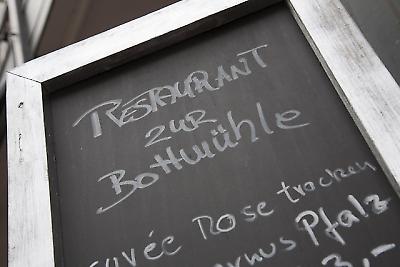 RESTAURANT
zur
Bottmühle
Cuvée Rose trocken
Pfalz
3,-